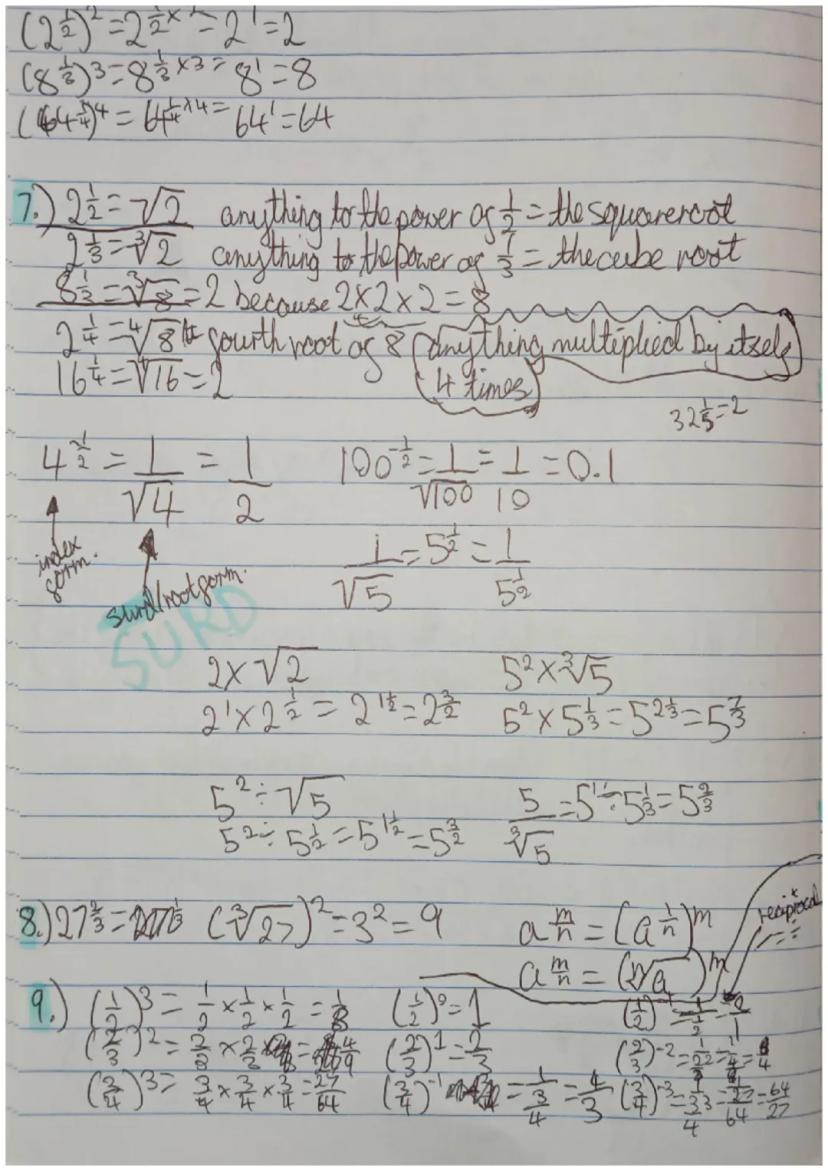 (2^½)² = 2^½ˣ² = 2¹ = 2
(8^⅓)³ = 8^⅓ˣ³ = 8¹ = 8
(64^¼)⁴ = 64^¼ˣ⁴ = 64¹ = 64
7.) 2^½ = √2 anything to the power of ½ = the squareroot
2^⅓ = ∛2 anything to the power of ⅓ = the cube root
8^⅓ = ∛8 = 2 because 2×2×2 = 8
2^¼ = ∜8 fourth root of 8 (anything multiplied by itself
16^¼ = ∜16 = 2 4 times)
32^⅕ = 2
4^-½ = 1/√4 = 1/2 100^-½ = 1/√100 = 1/10 = 0.1
index form.
surd/root form.
1/√5 = 5^½ = 1/5^½
SURD
2 × √2 5² × ∛5
2¹ × 2^½ = 2^1½ = 2^3/2 5² × 5^⅓ = 5^2⅓ = 5^7/3
5² ÷ √5 5/∛5 = 5¹ ÷ 5^⅓ = 5^⅔
5² ÷ 5^½ = 5^1½ = 5^3/2
8.) 27^⅔ = (∛27)² = 3² = 9 a^m/n = (a^1/n)^m
reciprocal
a^m/n = (ⁿ√a)^m
9.) (1/2)³ = 1/2 × 1/2 × 1/2 = 1/8 (1/2)⁰ = 1 (1/2)⁻¹ = 1/(1/2) = 2/1
(2/3)² = 2/3 × 2/3 = 4/9 (2/3)¹ = 2/3 (2/3)⁻²
(3/4)³ = 3/4 × 3/4 × 3/4 = 27/64 (3/4)⁻¹ = 1/(3/4) = 4/3 (3/4)⁻³ = 1/(3/4)³ = 1/(27/64) = 64/27